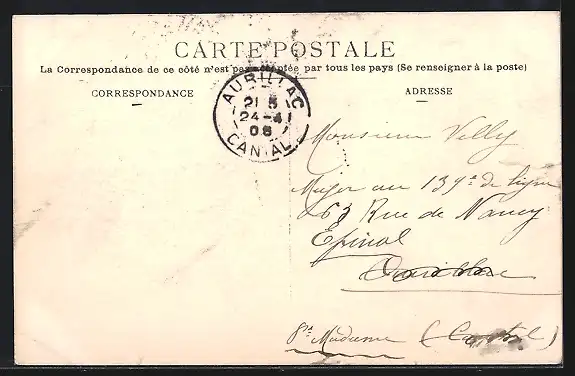 CARTE POSTALE
La Correspondance de ce côté n'est pas acceptée par tous les pays (Se renseigner à la poste)
CORRESPONDANCE
ADRESSE
AURILLAC
21 5
24-4
06
CANTAL
Monsieur Villy
Major au 139e de ligne
63 Rue de Nancy
Epinal
Madame (Cantal)